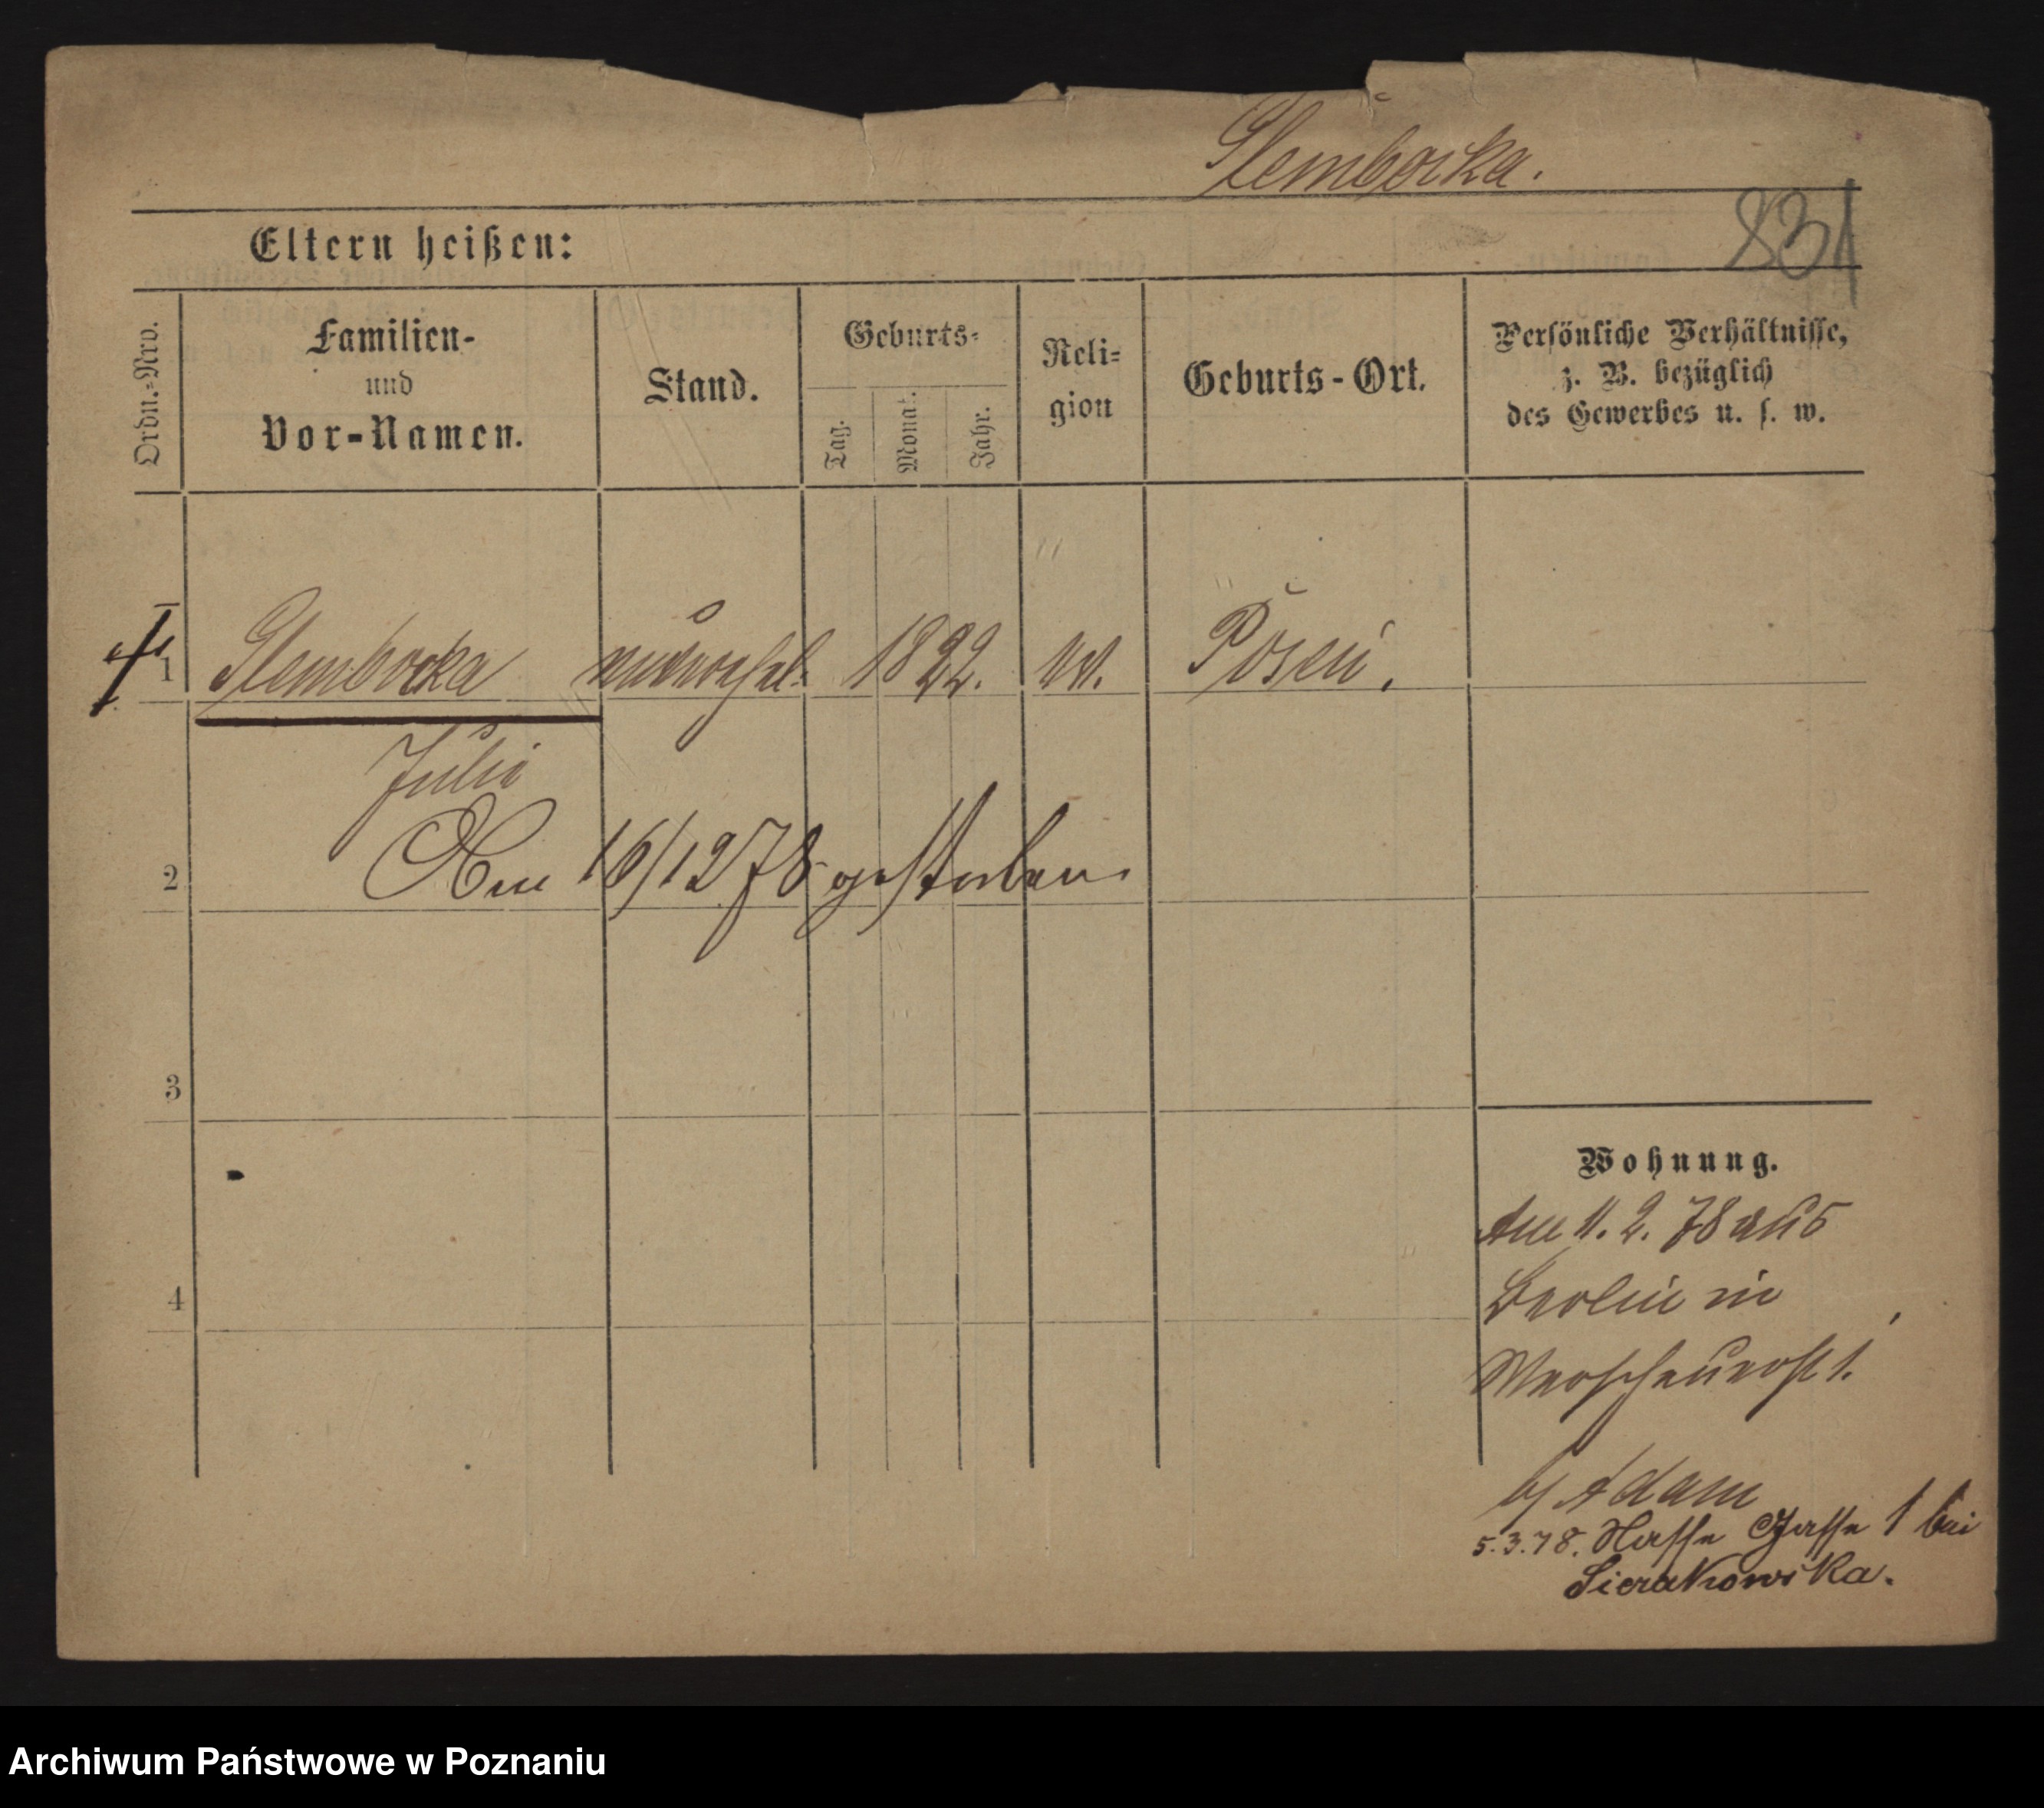 Stemborka.
831
Eltern heißen:
Ordn.-Nro.
Familien-
und
Vor-Namen.
Stand.
Geburts-
Tag.
Monat.
Jahr.
Reli-
gion
Geburts-Ort.
Persönliche Verhältnisse,
z. B. bezüglich
des Gewerbes u. s. w.
1 Stemborka unverehel. 1822. Posen.
Julie
2
Am 16/12 78 gestorben
3
4
Wohnung.
Am 11. 2. 78 aus
Berlin in
1.
b/ Adam
5.3.78. Nasse Gasse 1 bei
Sierakowska.
Archiwum Państwowe w Poznaniu